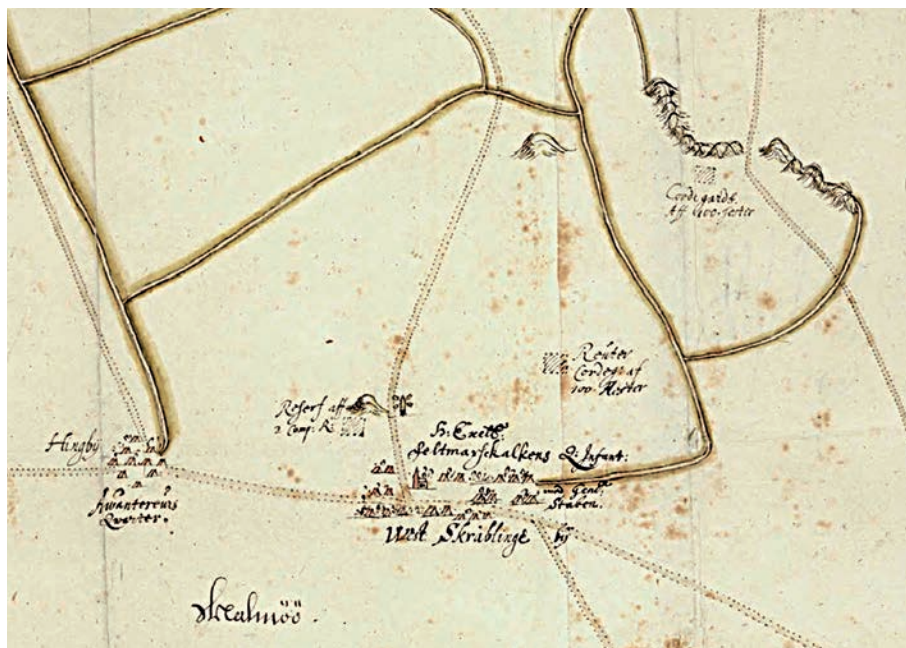 Cordegarde
Aff 400. hester
Reüter
Cordeg: af
100. Hester
Reserf aff
2 Comp: R:
H: Excell:
Feltmarskalkens Q: Infant:
med Genl:
Staben.
Hingby
Qvarter.
West Skräblinge by
Malmöö.